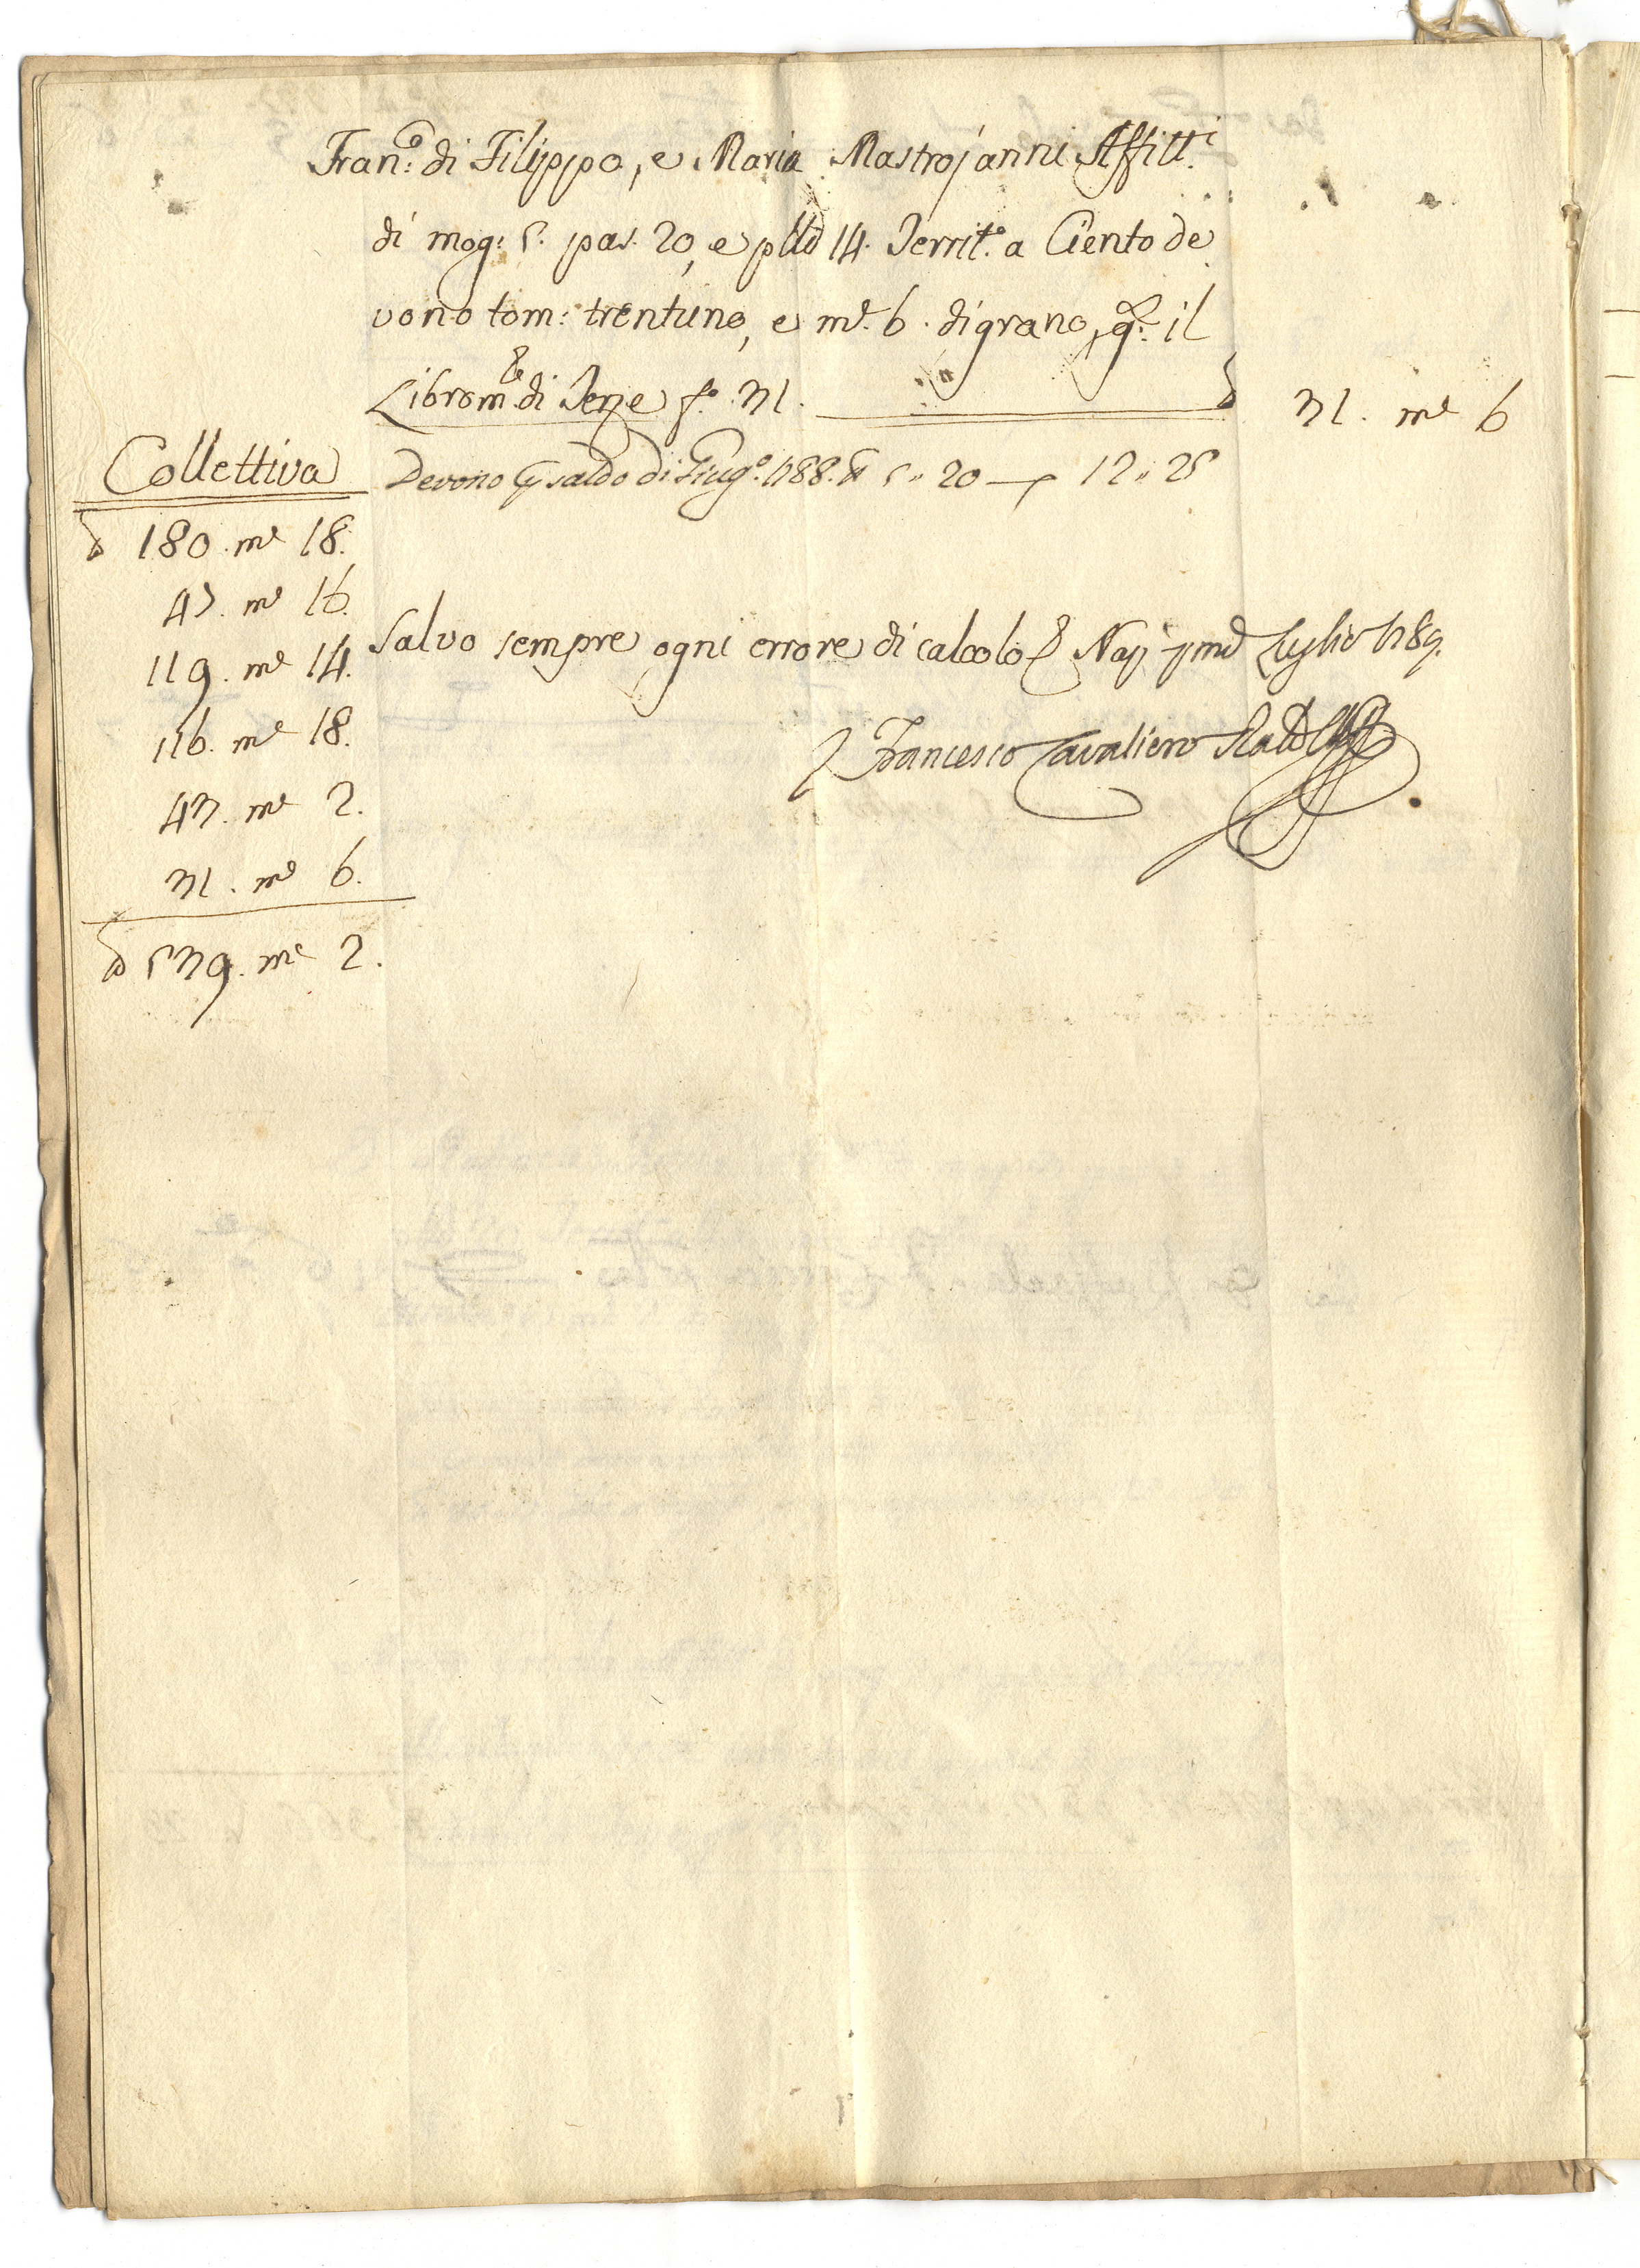 Fran.º di Filippo, e Maria Mastrojanni Affitt.i
di mog: 5. pas. 20, e 14. Territ.º a Ciento de
vono tom: trentuno, e m.e 6. di grano, il
Librom. di Terze f.º 31. 31. m.e 6
Devono saldo di Giug.º 1788. 5.. 20 — 12.. 25
Collettiva
180. m.e 18.
47. m.e 16.
119. m.e 14.
116. m.e 18.
43. m.e 2.
31. m.e 6.
539. m.e 2.
Salvo sempre ogni errore di calcolo Nap. p.mo Luglio 1789.
Francesco Cavaliero